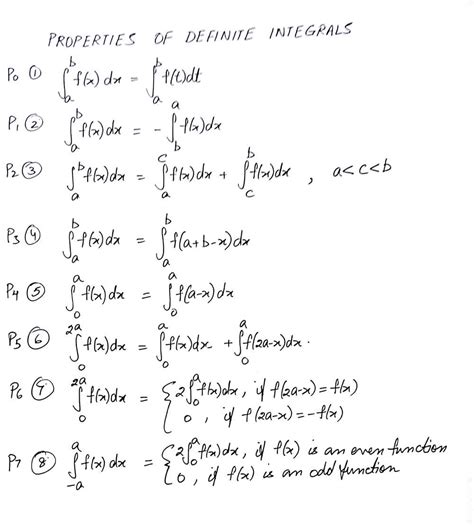 PROPERTIES OF DEFINITE INTEGRALS
P₀ ① ∫ₐᵇ f(x) dx = ∫ₐᵇ f(t)dt
P₁ ② ∫ₐᵇ f(x)dx = - ∫_b^a f(x)dx
P₂ ③ ∫ₐᵇ f(x)dx = ∫ₐᶜ f(x)dx + ∫_c^b f(x)dx , a<c<b
P₃ ④ ∫ₐᵇ f(x)dx = ∫ₐᵇ f(a+b-x)dx
P₄ ⑤ ∫₀ᵃ f(x)dx = ∫₀ᵃ f(a-x)dx
P₅ ⑥ ∫₀²ᵃ f(x)dx = ∫₀ᵃ f(x)dx + ∫₀ᵃ f(2a-x)dx.
P₆ ⑦ ∫₀²ᵃ f(x)dx = { 2∫₀ᵃ f(x)dx, if f(2a-x)=f(x)
0 , if f(2a-x)=-f(x)
P₇ ⑧ ∫₋ₐᵃ f(x) dx = { 2∫₀ᵃ f(x)dx, if f(x) is an even function
0, if f(x) is an odd function